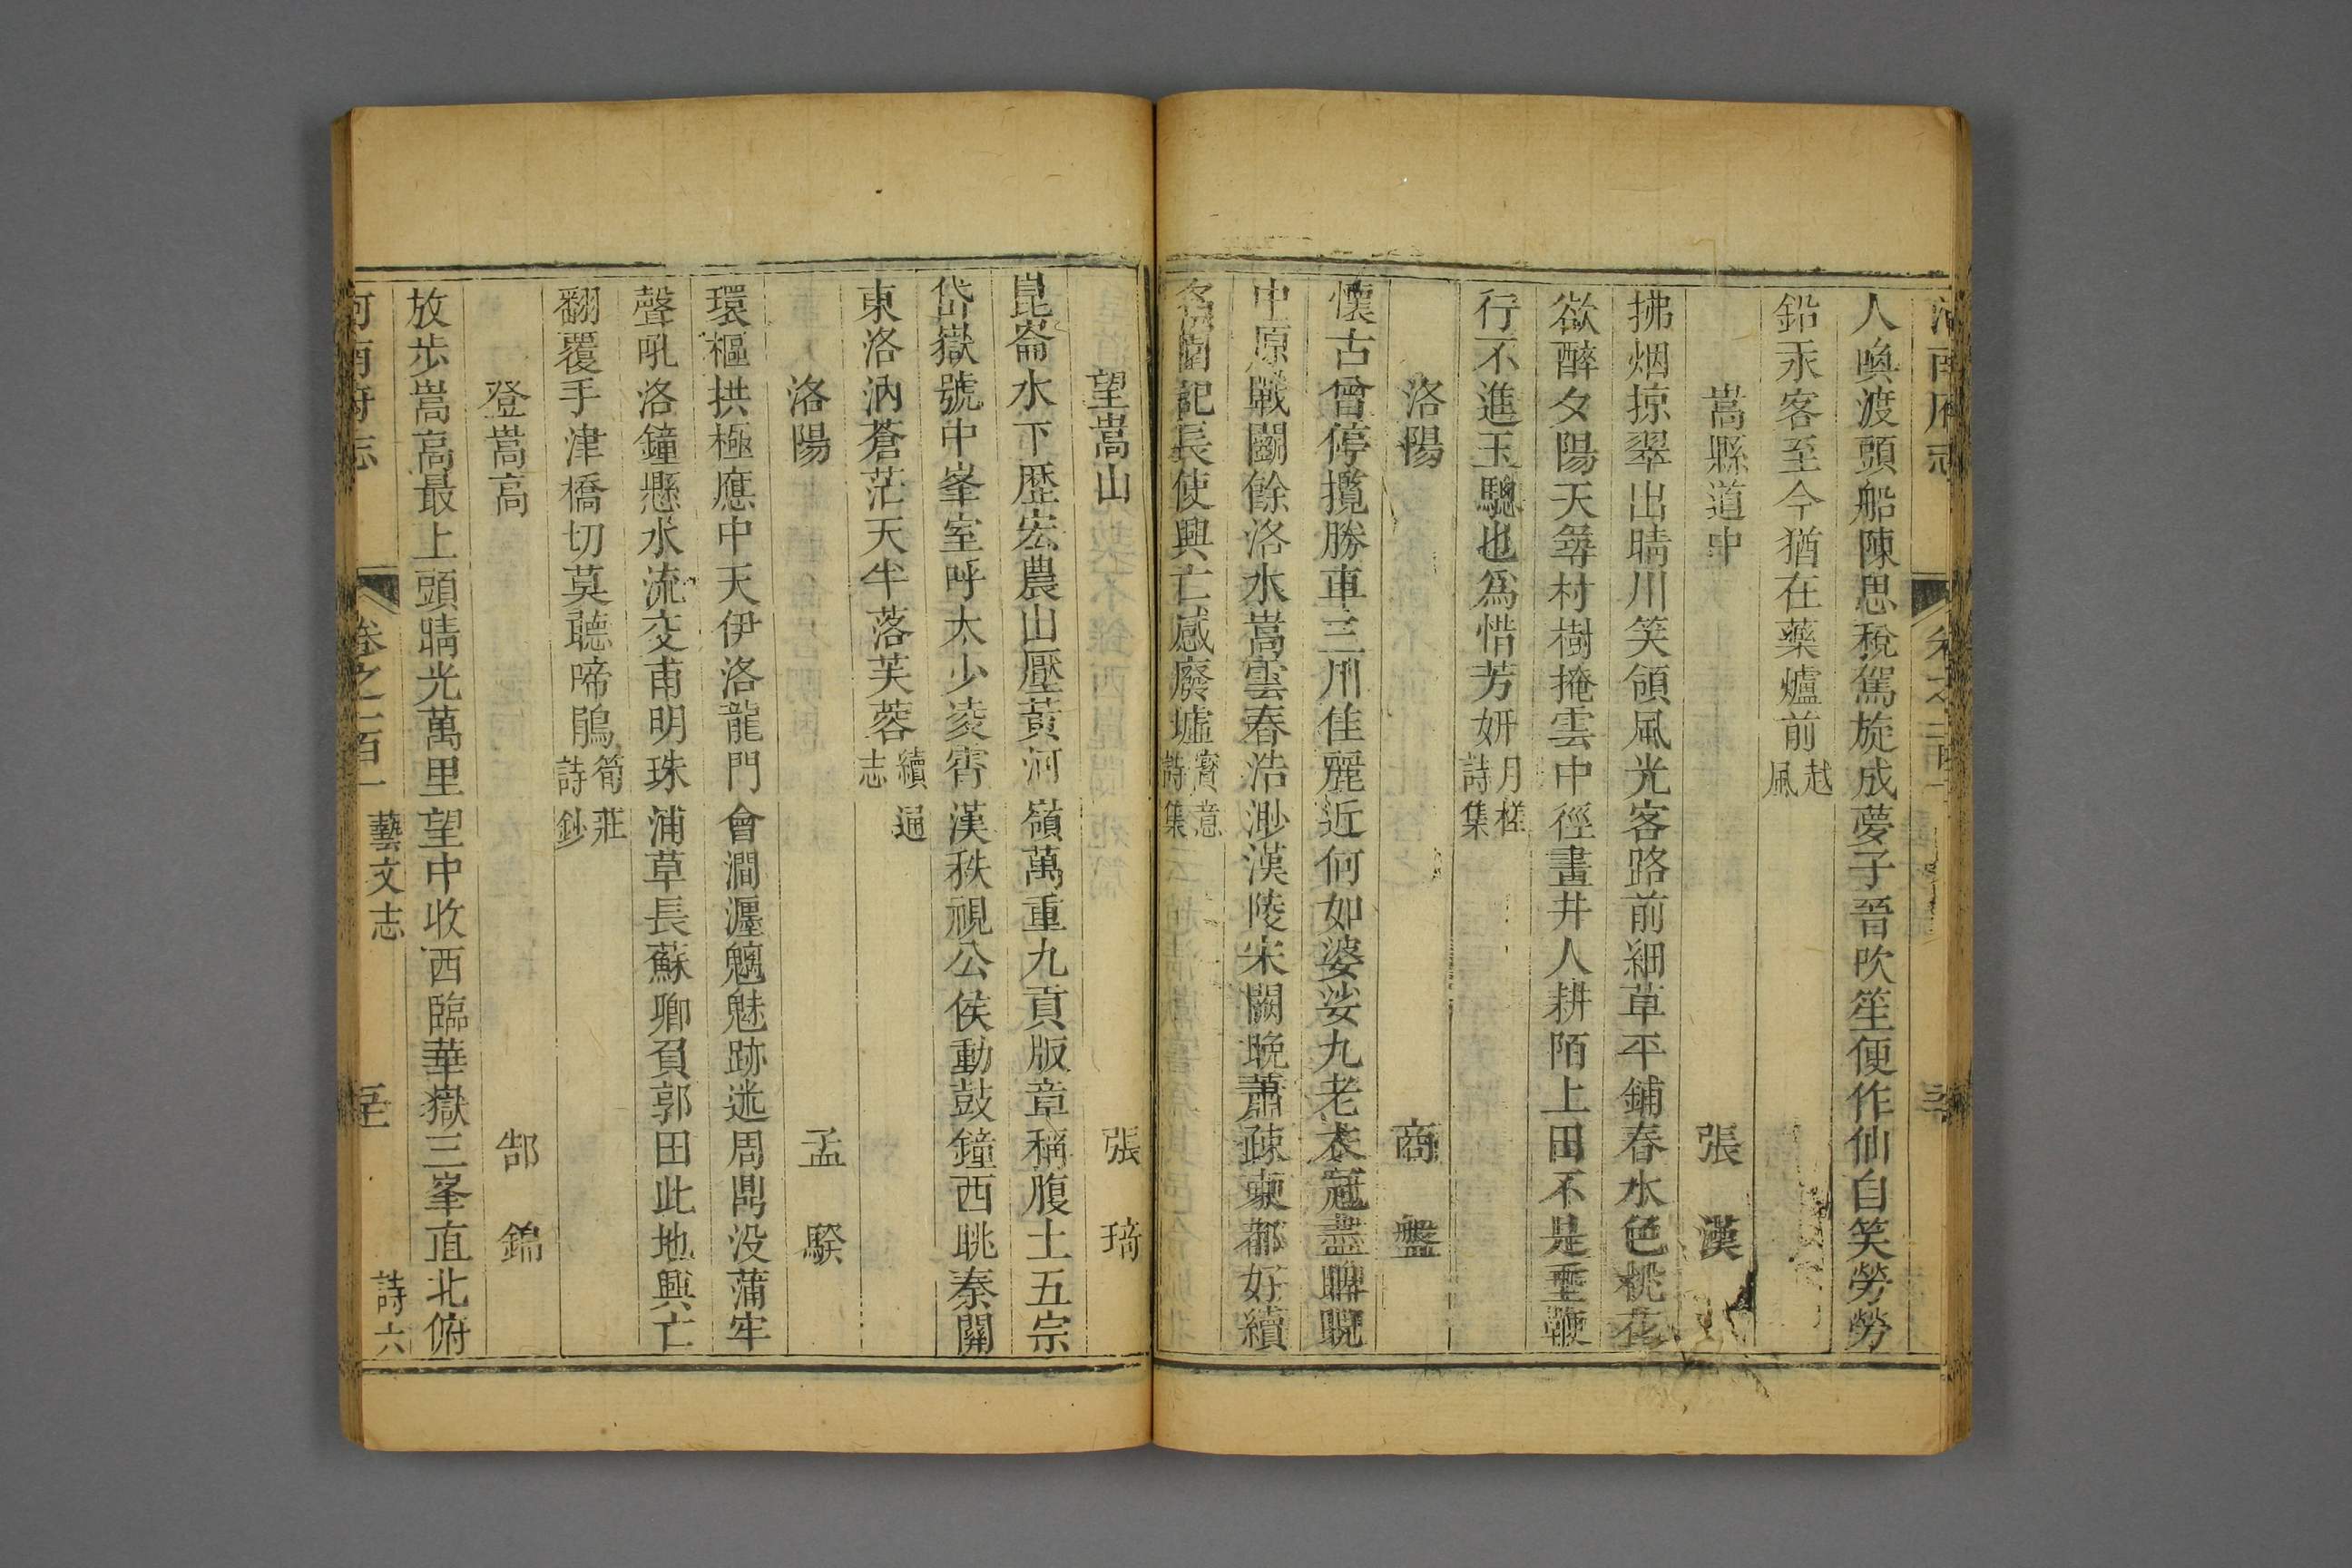 人喚渡頭船陳思稅駕旋成夢子晉吹笙便作仙自笑勞勞
鉛汞客至今猶在藥爐前越風
嵩縣道中 張漢
拂烟掠翠出晴川笑領風光客路前細草平鋪春水色桃花
欲醉夕陽天尋村樹掩雲中徑畫井人耕陌上田不是垂鞭
行不進玉驄也爲惜芳妍月槎詩集
洛陽 商盤
懷古曾停攬勝車三川佳麗近何如婆娑九老衣冠盡睥睨
中原戰鬭餘洛水嵩雲春浩渺漢陵宋闕晚蕭疎東都好續
名園記長使興亡感廢墟質意詩集
望嵩山 張琦
崑崙水下歷宏農山壓黃河嶺萬重九貢版章稱腹土五宗
岱嶽號中峯室呼太少凌霄漢秩視公侯動鼓鐘西眺秦關
東洛汭蒼茫天半落芙蓉續通志
洛陽 孟騤
環樞拱極應中天伊洛龍門會澗瀍魑魅跡迷周鼎没蒲牢
聲吼洛鐘懸水流交甫明珠浦草長蘇卿負郭田此地興亡
翻覆手津橋切莫聽啼鵑筍莊詩鈔
登嵩高 郜錦
放步嵩高最上頭晴光萬里望中收西臨華嶽三峯直北俯
河南府志 卷之一百一 藝文志 詩六